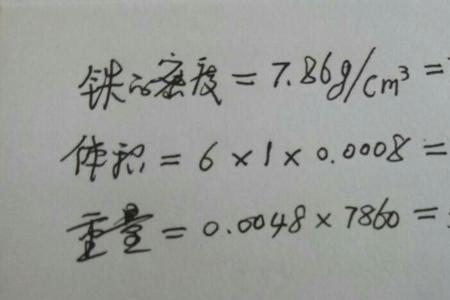 铁的密度=7.86g/cm³=
体积=6×1×0.0008=
重量=0.0048×7860=